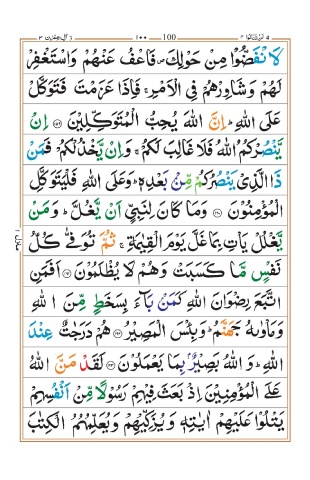 لن تنالوا ٤ ١٠٠ 100 اٰل عمرٰن ٣
لَانْفَضُّوْا مِنْ حَوْلِكَ ۪ فَاعْفُ عَنْهُمْ وَاسْتَغْفِرْ
لَهُمْ وَشَاوِرْهُمْ فِی الْاَمْرِ ۚ فَاِذَا عَزَمْتَ فَتَوَكَّلْ
عَلَی اللّٰهِ ؕ اِنَّ اللّٰهَ یُحِبُّ الْمُتَوَكِّلِیْنَ ﴿۱۵۹﴾ اِنْ
یَّنْصُرْكُمُ اللّٰهُ فَلَا غَالِبَ لَكُمْ ۚ وَاِنْ یَّخْذُلْكُمْ فَمَنْ
ذَا الَّذِیْ یَنْصُرُكُمْ مِّنْۢ بَعْدِهٖ ؕ وَعَلَی اللّٰهِ فَلْیَتَوَكَّلِ
الْمُؤْمِنُوْنَ ﴿۱۶۰﴾ وَمَا كَانَ لِنَبِیٍّ اَنْ یَّغُلَّ ؕ وَمَنْ
یَّغْلُلْ یَاْتِ بِمَا غَلَّ یَوْمَ الْقِیٰمَةِ ۚ ثُمَّ تُوَفّٰی كُلُّ
نَفْسٍ مَّا كَسَبَتْ وَهُمْ لَا یُظْلَمُوْنَ ﴿۱۶۱﴾ اَفَمَنِ
اتَّبَعَ رِضْوَانَ اللّٰهِ كَمَنْۢ بَآءَ بِسَخَطٍ مِّنَ اللّٰهِ
وَمَاْوٰىهُ جَهَنَّمُ ؕ وَبِئْسَ الْمَصِیْرُ ﴿۱۶۲﴾ هُمْ دَرَجٰتٌ عِنْدَ
اللّٰهِ ؕ وَاللّٰهُ بَصِیْرٌۢ بِمَا یَعْمَلُوْنَ ﴿۱۶۳﴾ لَقَدْ مَنَّ اللّٰهُ
عَلَی الْمُؤْمِنِیْنَ اِذْ بَعَثَ فِیْهِمْ رَسُوْلًا مِّنْ اَنْفُسِهِمْ
یَتْلُوْا عَلَیْهِمْ اٰیٰتِهٖ وَیُزَكِّیْهِمْ وَیُعَلِّمُهُمُ الْكِتٰبَ
منزل ١